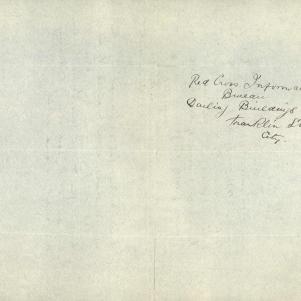 Red Cross Informa
Bureau
Darling Buildings
Franklin St
City.